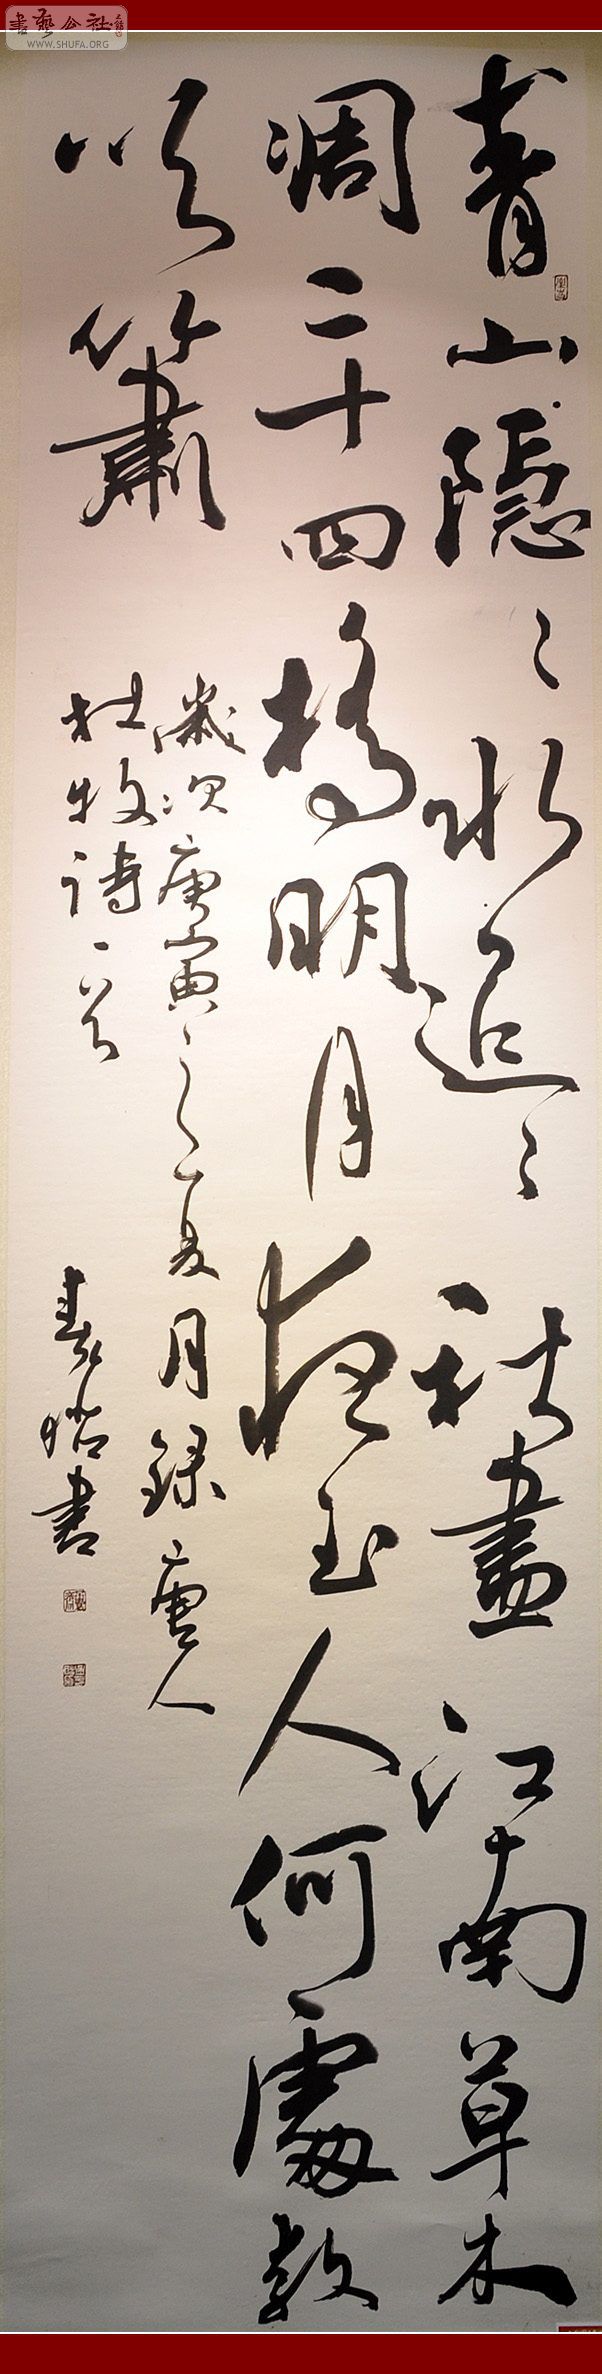 青山隐〻水迢〻秋盡江南草木
凋二十四橋明月夜玉人何處教
吹簫
歲次庚寅之夏月録唐人
杜牧诗一首
書
書藝公社
WWW.SHUFA.ORG